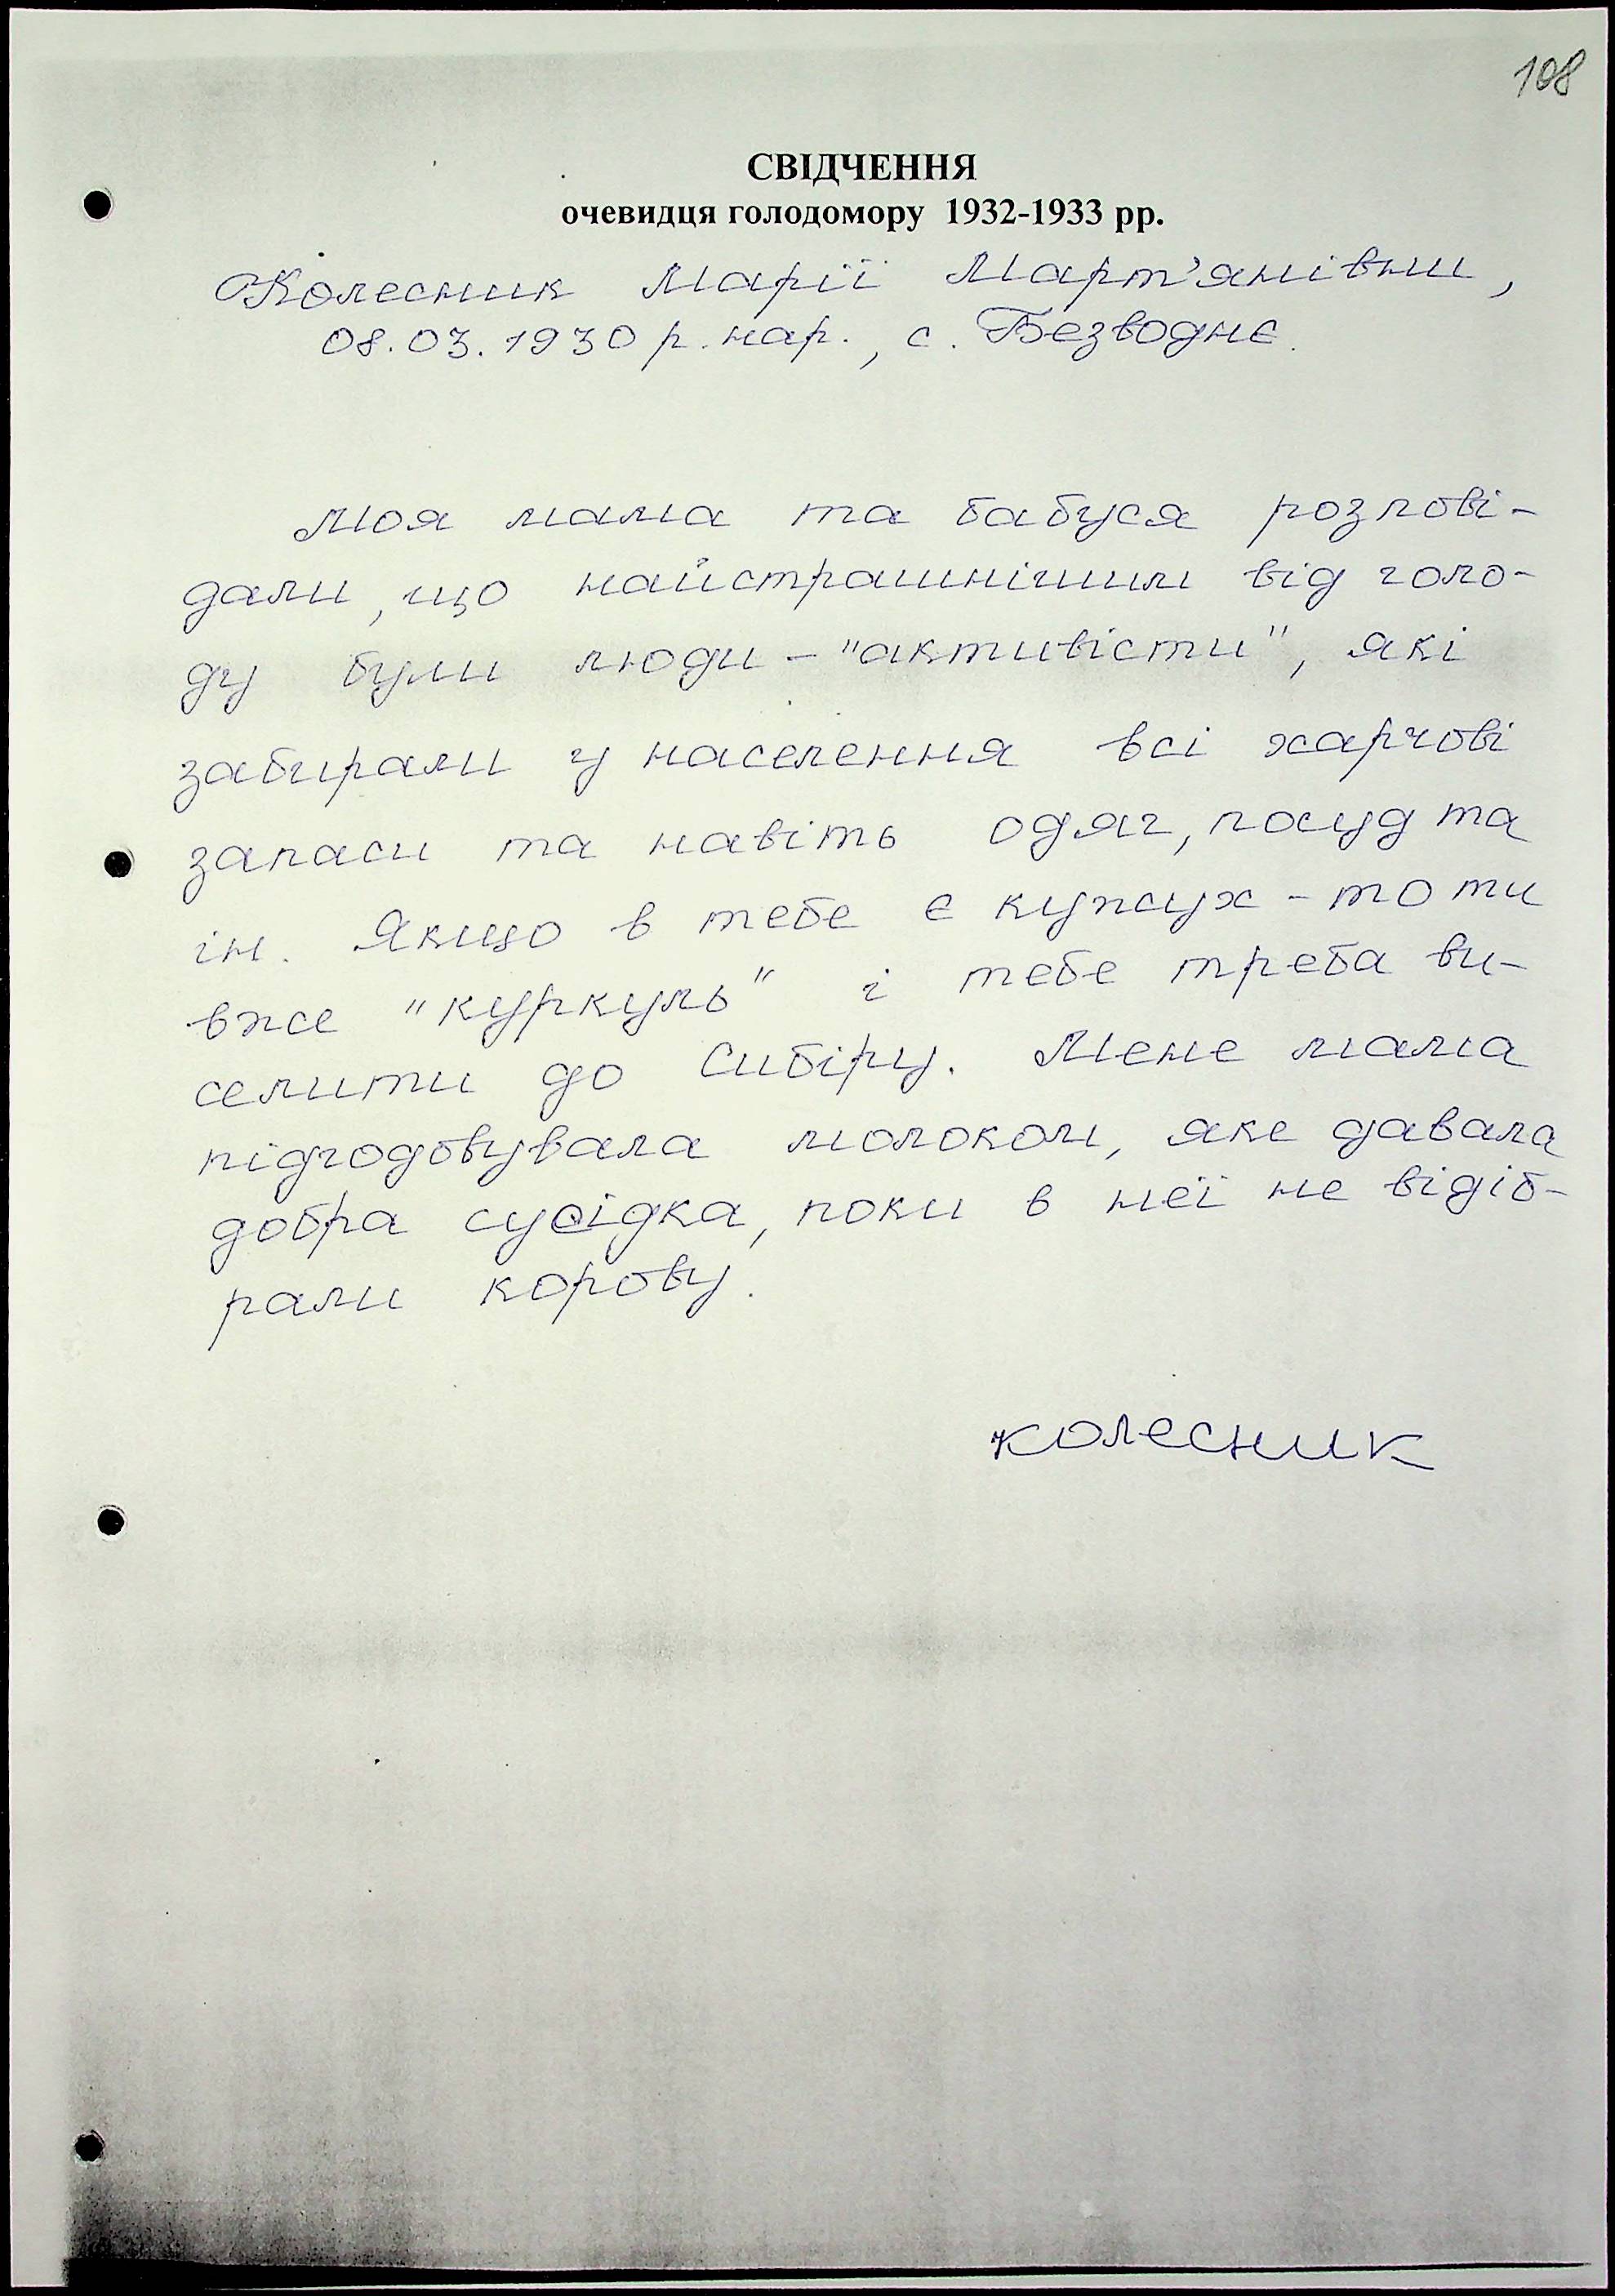 108
СВІДЧЕННЯ
очевидця голодомору 1932-1933 рр.
Колесник Марії Март'янівни,
08.03.1930 р. нар., с. Безводнє.
Моя мама та бабуся розпові-
дали, що найстрашнішим від голо-
ду були люди - "активісти", які
забирали у населення всі харчові
запаси та навіть одяг, посуд та
ін. Якщо в тебе є кужух - то ти
вже "куркуль" і тебе треба ви-
селити до Сибіру. Мене мама
підгодовувала молоком, яке давала
добра сусідка, поки в неї не відіб-
рали корову.
Колесник